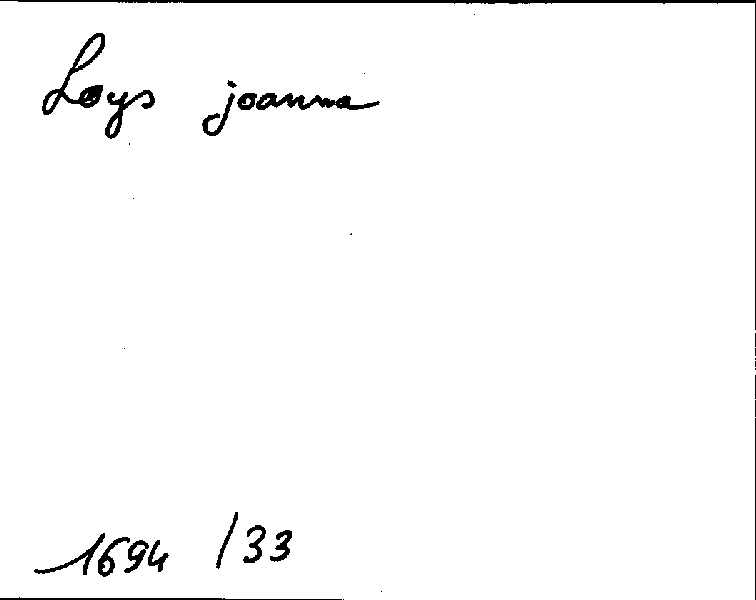 Loys joanna
1694 /33